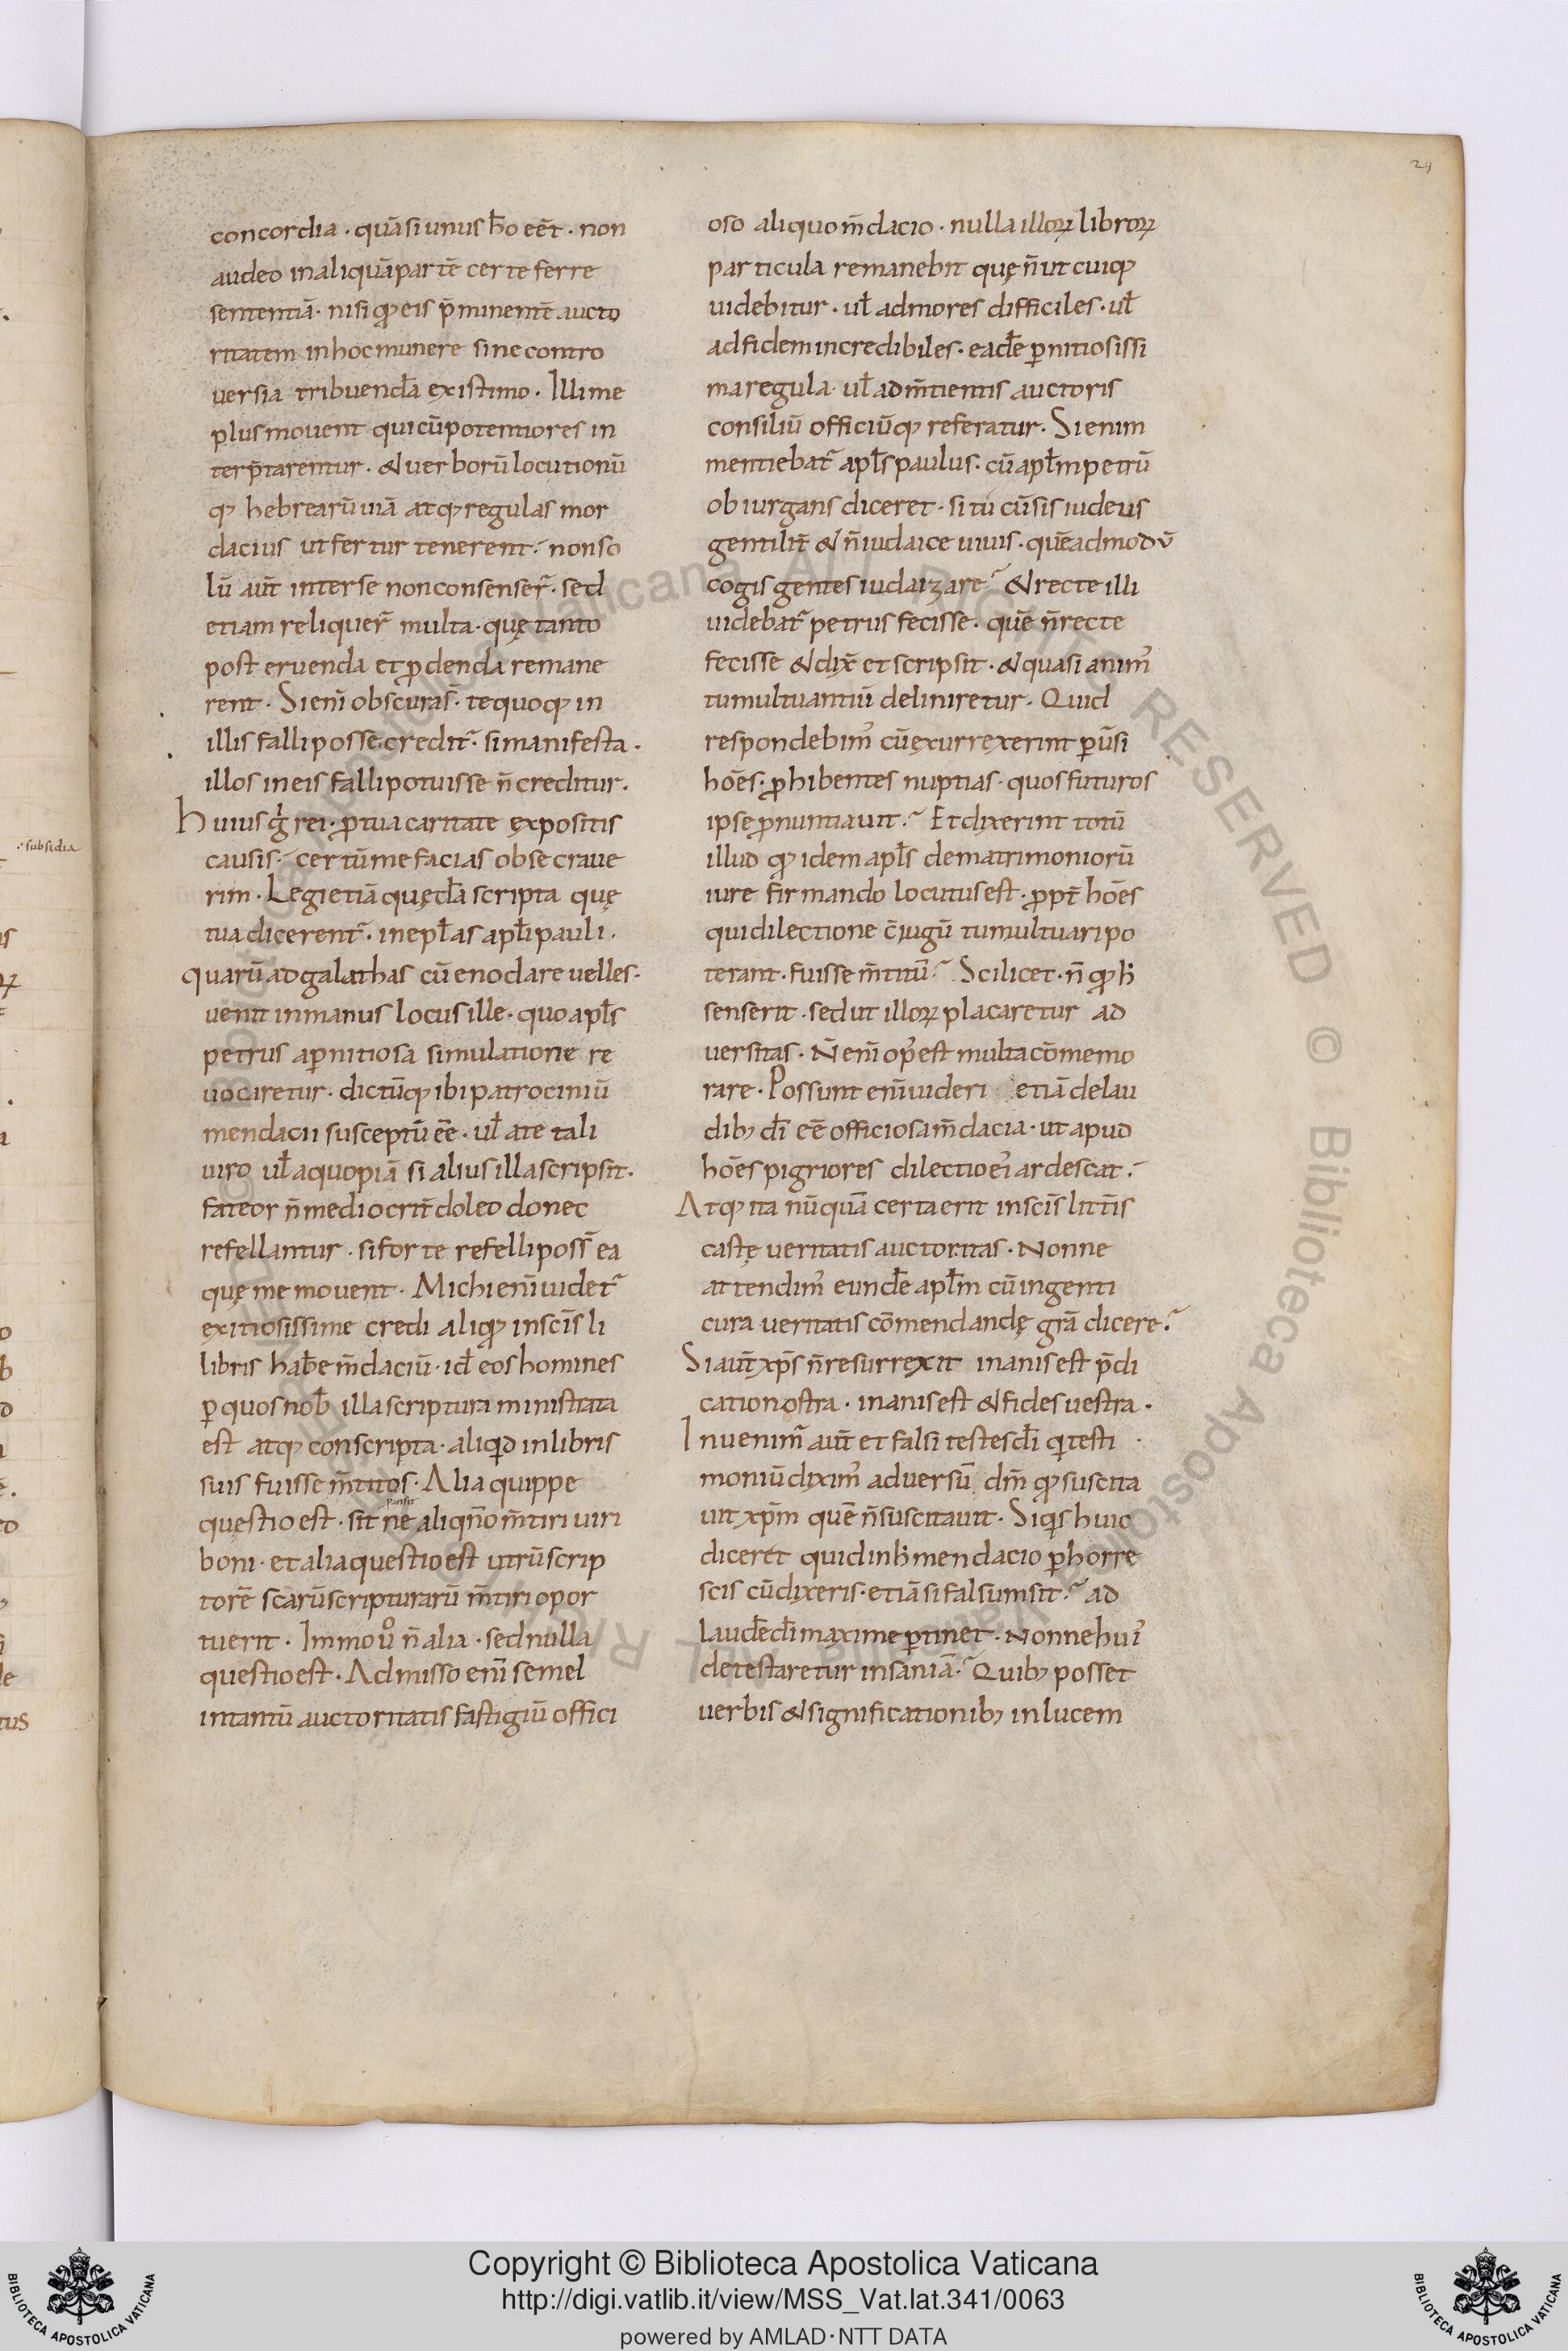 29
concordia · quā si unus ħo eēt · non
audeo in aliquā partē certe ferre
sententiā · nisi qđ eis p̄minentē aucto
ritatem in hoc munere sine contro
versia tribuendā existimo · Illi me
plus movent qui cū potentiores in
terp̄tarentur · & verborū locutionū
q; hebrearū viā atq; regulas mor
dacius ut fertur tenerent · non so
lū aut̄ inter se non consenser̄ · sed
etiam reliquer̄ multa · quę tanto
post eruenda et ꝓdenda remane
rent · Si enī obscuras̄ · te quoq; in
illis falli posse credit᷑ · si manifesta ·
illos in eis falli potuisse n̄ creditur ·
huius g̊ rei · ꝓ tua caritate expositis
causis · certū me facias obsecrave
rim · Legi etiā quędā scripta quę
tua dicerent᷑ · in epł̄as apłi pauli ·
quarū ad galathas cū enodare velles ·
venit in manus locus ille · quo apłs
petrus a ꝑnitiosa simulatione re
vocaretur · dictūq; ibi patrociniū
mendacii susceptū eē · uł a te tali
uiro uł a quopiā si alius illa scripsit ·
fateor n̄ mediocrit̄ doleo donec
refellantur · si forte refelli poss̄ ea
quę me movent · Michi enī videt᷑
exitiosissime credi aliqđ in scīs li
libris habē m̄daciū · id̄ eos homines
ꝑ quos nob̄ illa scriptura ministrata
est atq; conscripta · aliqid in libris
suis fuisse m̄titos · Alia quippe
questio est · sit ne aliqn̄o m̄tiri viri
boni · et alia questio est utrū scrip
torē scārū scripturarū m̄tiri opor
tuerit · Immo ův n̄ alia · sed nulla
questio est · Admisso enī semel
in tantū auctoritatis fastigiū offici
oso aliquo m̄dacio · nulla illoꝝ libroꝝ
particula remanebit quę n̄ ut cuiq;
videbitur · uł ad mores difficiles · uł
ad fidem incredibiles · eadē ꝑnitiosissi
ma regula · uł ad m̄tientis auctoris
consiliū officiūq; referatur · Si enim
mentiebat᷑ apłs paulus · cū apłm petrū
obiurgans diceret · si tu cū sis iudeus
gentilit̄ & n̄ iudaice vivis · quēadmodū
cogis gentes iudaizare? & recte illi
videbat᷑ petrus fecisse · quē n̄ recte
fecisse & dix̄ et scripsit · & quasi anim᷒
tumultuantiū deliniretur · Quid
respondebim᷒ cū exurrexerint ꝑūsi
hoēs · ꝓhibentes nuptias · quos futuros
ipse ꝓnuntiavit? Et dixerint totū
illud qđ idem apłs de matrimoniorū
iure firmando locutus est · ꝓpt̄ hoēs
qui dilectione c̄iugū tumultuari po
terant · fuisse m̄titū? Scilicet · n̄ qđ ħ
senserit · sed ut illoꝝ placaretur ad
versitas · N̄ enī op᷒ est multa cōmemo
rare · Possunt enī videri etiā de lau
dib; dī eē officiosa m̄dacia · ut apud
hoēs pigriores dilectio ei᷒ ardescat?
Atq; ita nūquā certa erit in scīs litt̄is
castę veritatis auctoritas · Nonne
attendim᷒ eundē apłm cū ingenti
cura veritatis cōmendandę grā dicere?
Si aut̄ xp̄s n̄ resurrexit inanis est p̄di
catio nostra · inanis est & fides vestra ·
Invenim᷒ aut̄ et falsi testes dī qi testi
moniū dixim᷒ adversū dm̄ qđ suscita
vit xp̄m quē n̄ suscitavit · Siqis huic
diceret quid in ħ mendacio ꝑhorre
scis cū dixeris · etiā si falsum sit? ad
laudē dī maxime ꝑtinet · Nonne hui᷒
detestaretur insaniā? Quib; posset
verbis & significationib; in lucem
subsidia
Copyright © Biblioteca Apostolica Vaticana
http://digi.vatlib.it/view/MSS_Vat.lat.341/0063
powered by AMLAD·NTT DATA
BIBLIOTECA APOSTOLICA VATICANA
BIBLIOTECA APOSTOLICA VATICANA